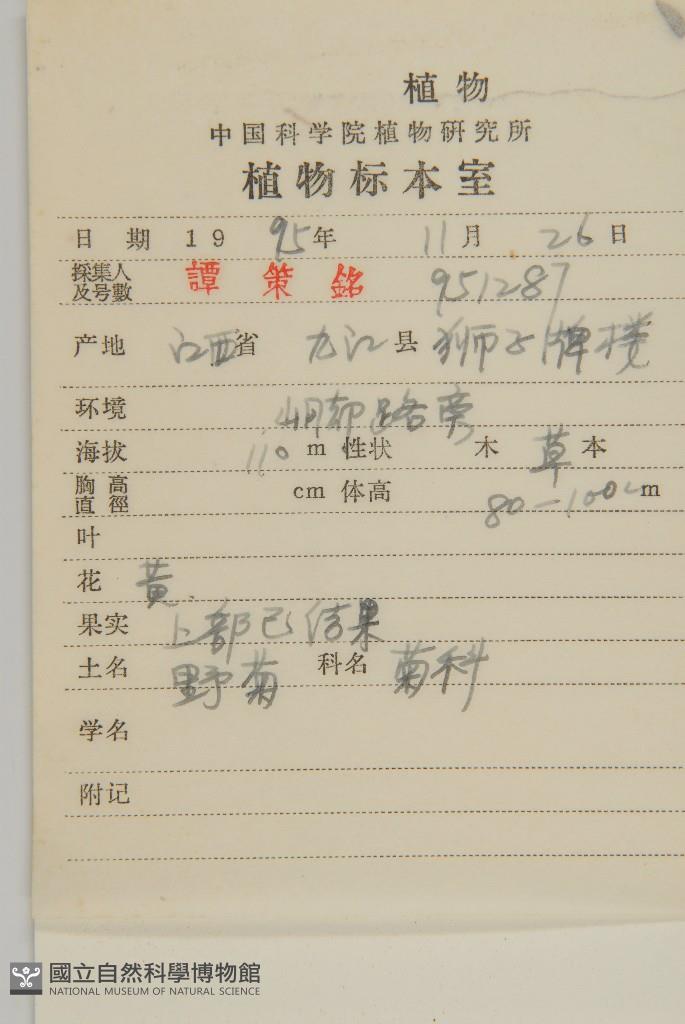 植物
中国科学院植物研究所
植物标本室
日期 1995年 11月 26日
採集人及号數 譚策銘 951287
产地 江西省 九江县 狮子牌楼
环境 路旁
海拔 110 m 性状 木 草本
胸高直徑 cm 体高 80-100cm
叶
花 黄.
果实 上部已结果
土名 野菊 科名 菊科
学名
附记
國立自然科學博物館
NATIONAL MUSEUM OF NATURAL SCIENCE